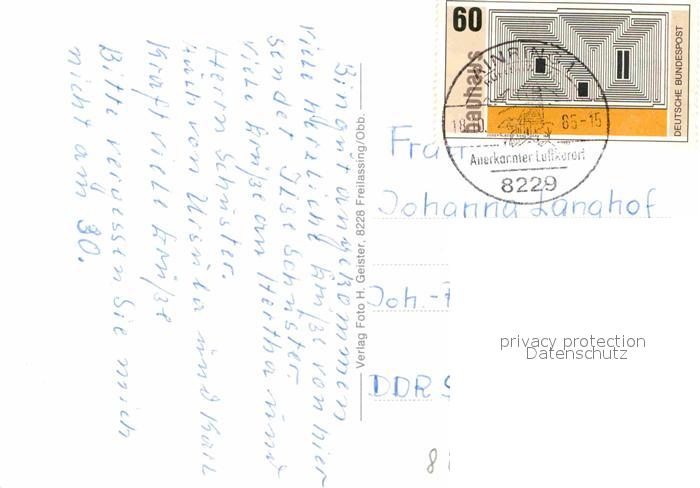 Bin gut angekommen
viele herzliche Grüße von hier
sendet Ilse Schuster.
Viele Grüße an Hertha und
Herrn Schuster.
Auch von Ursula und Karl
Kraft viele Grüße
Bitte vergessen Sie mich
nicht am 30.
Verlag Foto H. Geister, 8228 Freilassing/Obb.
60
bauhaus
DEUTSCHE BUNDESPOST
AINRING 1
18.
85-15
Anerkannter Luftkurort
8229
Frau
Johanna Langhof
Joh.-
DDR
8
privacy protection
Datenschutz